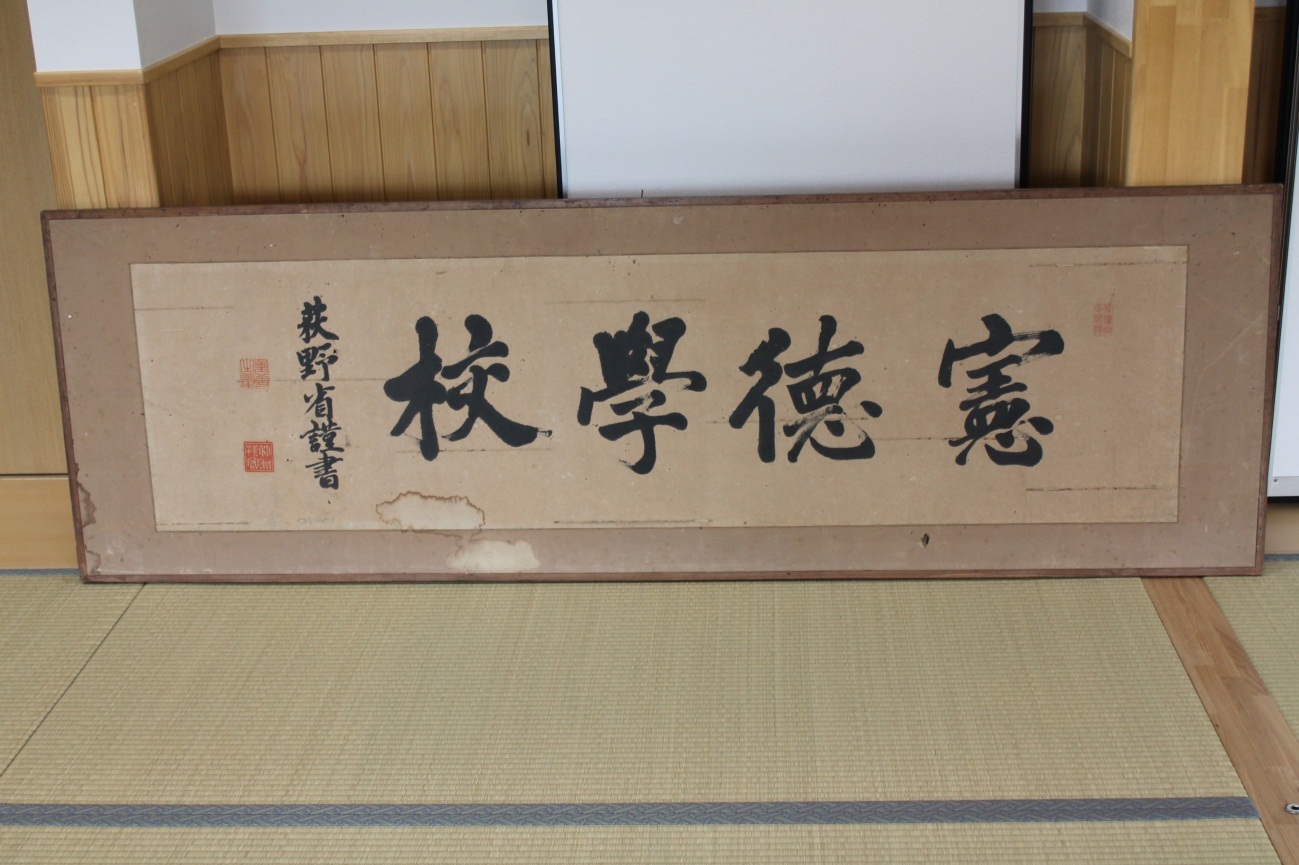 憲德學校
荻野省謹書